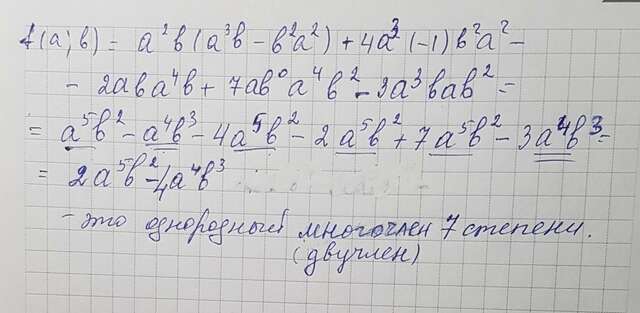 f(a;b) = a²b(a³b − b²a²) + 4a³(−1)b²a² −
− 2aba⁴b + 7ab⁰a⁴b² − 3a³bab² =
= a⁵b² − a⁴b³ − 4a⁵b² − 2a⁵b² + 7a⁵b² − 3a⁴b³ =
= 2a⁵b² − 4a⁴b³
- это однородный многочлен 7 степени.
(двучлен)